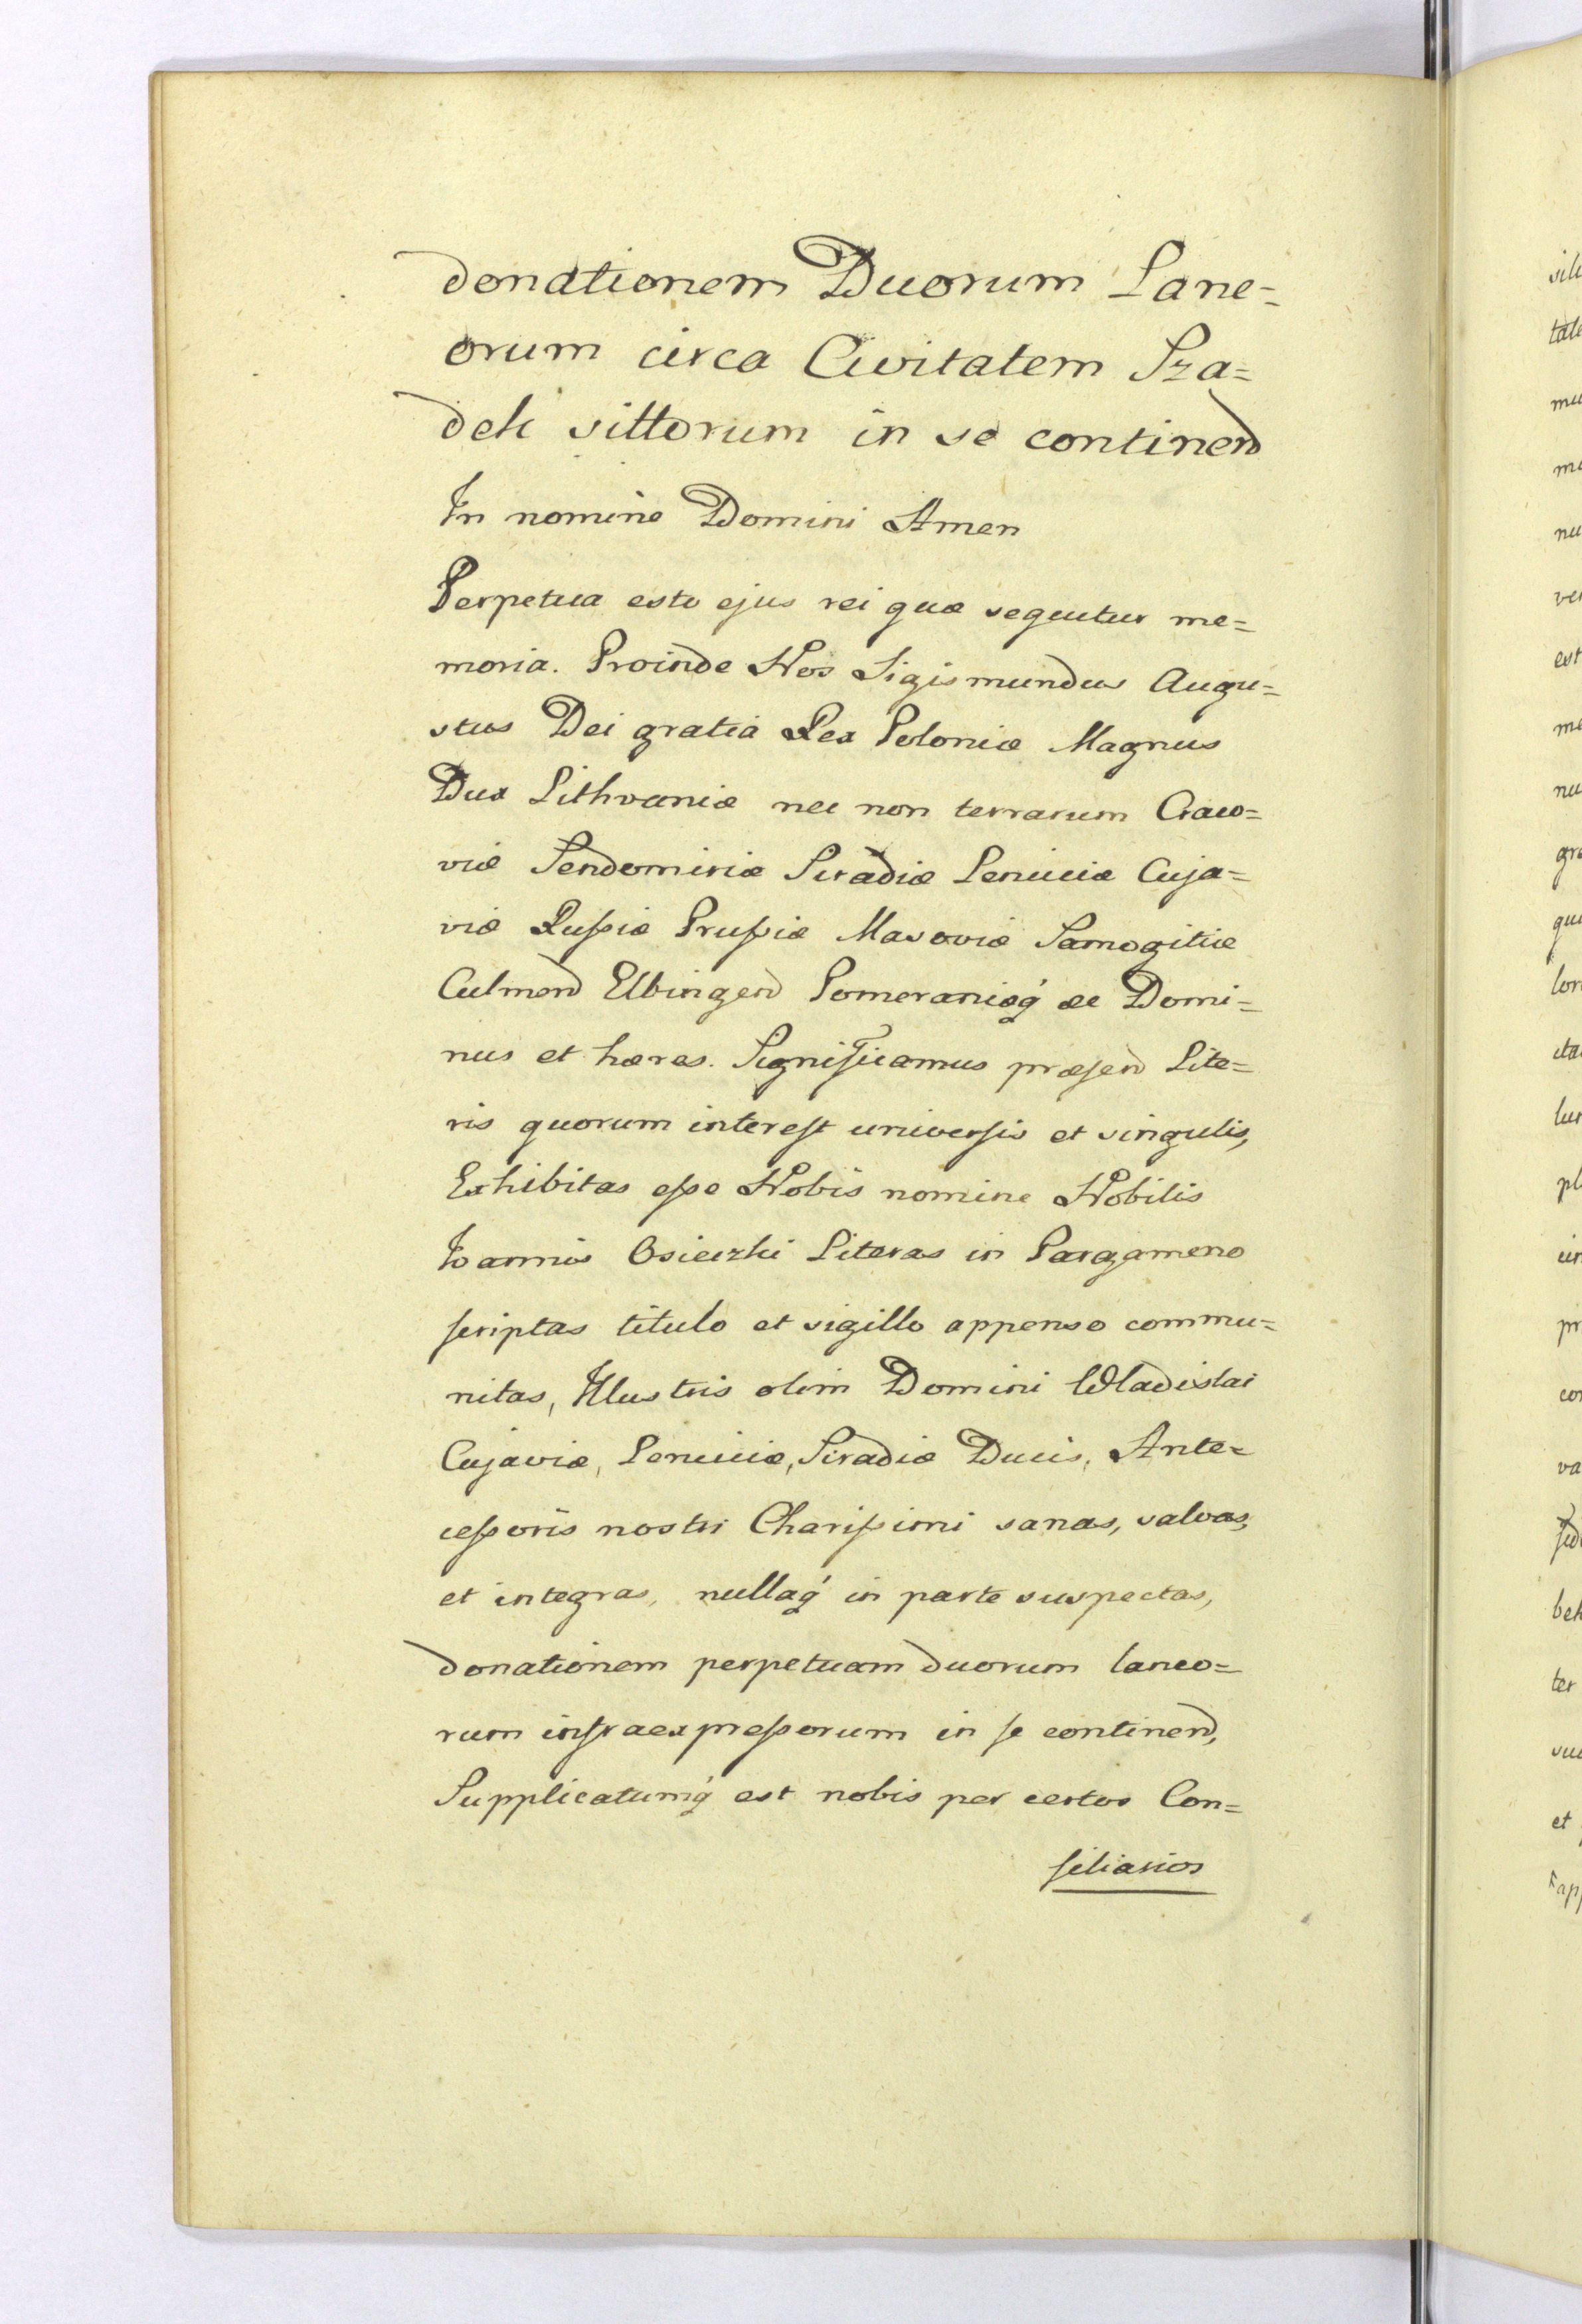 donationem Duorum Lane=
orum circa Civitatem Sza=
dek sittorum in se continen
In nomine Domini Amen
Perpetua esto ejus rei quæ seqeutur me=
moria. Proinde Nos Sigismundus Augu=
stus Dei gratia Rex Poloniæ Magnus
Dux Lithvaniæ nec non terrarum Craco=
viæ Sendomiriæ Siradiæ Lenciciæ Cuja=
viæ Russiæ Prussiæ Masoviæ Samogitiæ
Culmen Elbingen Pomeraniæq́ ac Domi=
nus et hæres. Significamus præsen Lite=
ris quorum interest universis et singulis,
Exhibitas esse Nobis nomine Nobilis
Joannis Osieczki Literas in Pargameno
scriptas titulo et sigillo appenso commu=
nitas, Illustris olim Domini Wladislai
Cujaviæ, Lenciciæ, Siradiæ Ducis, Ante=
cessoris nostri Charissimi sanas, salvas,
et integras, nullaq́ in parte suspectas,
donationem perpetuam duorum laneo=
rum infraexpressorum in se continen,
Supplicatumq́ est nobis per certos Con=
siliarios